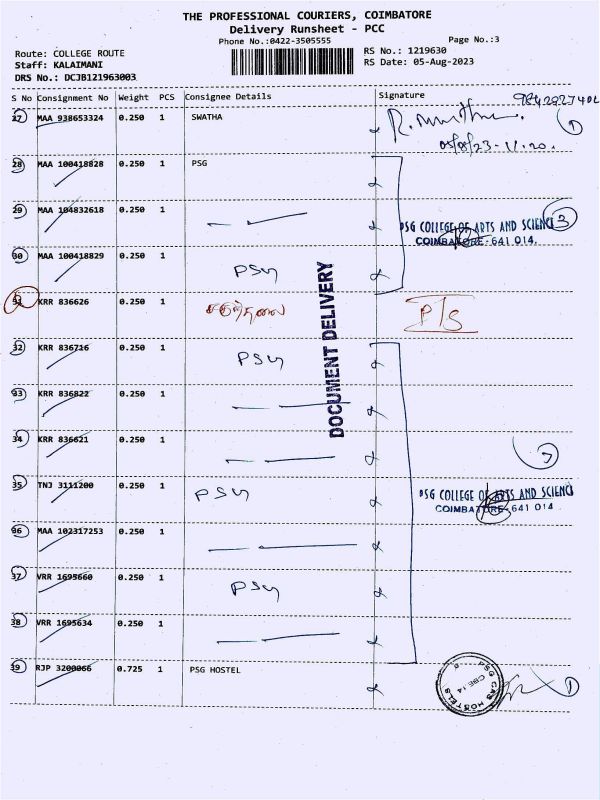 THE PROFESSIONAL COURIERS, COIMBATORE
Delivery Runsheet - PCC
Phone No.:0422-3505555
Page No.:3
Route: COLLEGE ROUTE
Staff: KALAIMANI
DRS No.: DCJB121963003
RS No.: 1219630
RS Date: 05-Aug-2023
S No Consignment No Weight PCS Consignee Details Signature
27 MAA 938653324 0.250 1 SWATHA
05/08/23-11.20.
1
28 MAA 100418828 0.250 1 PSG
29 MAA 104832618 0.250 1
PSG COLLEGE OF ARTS AND SCIENCE
COIMBATORE-641 014.
3
30 MAA 100418829 0.250 1 PSG
31 KRR 836626 0.250 1
32 KRR 836716 0.250 1 PSG
33 KRR 836822 0.250 1
34 KRR 836621 0.250 1
35 TNJ 3111200 0.250 1 PSG
PSG COLLEGE OF ARTS AND SCIENCE
COIMBATORE-641 014
36 MAA 102317253 0.250 1
37 VRR 1695660 0.250 1 PSG
38 VRR 1695634 0.250 1
39 RJP 3200066 0.725 1 PSG HOSTEL
PSG CAS HOSTELS
CBE.14
1
DOCUMENT DELIVERY